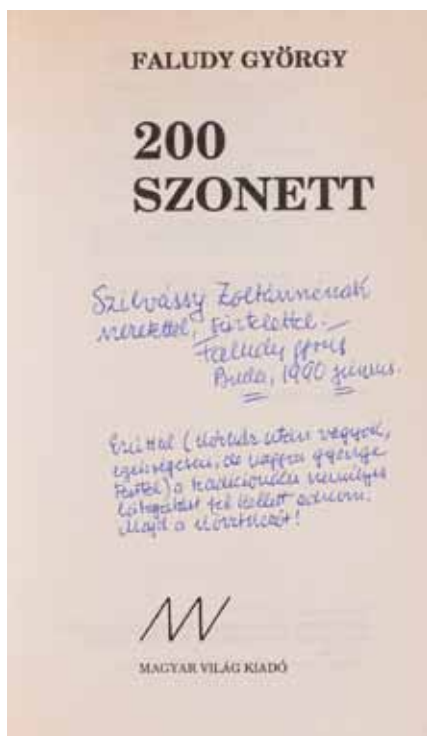 FALUDY GYÖRGY
200
SZONETT
Szilvássy Zoltánnénak
szeretettel, tisztelettel.
Faludy György
Buda, 1990 június.
Ezúttal (kórház után vagyok,
egészségesen, de nagyon gyönge
testtel) a tradicionális személyes
látogatást fel kellett adnom.
Majd a
MAGYAR VILÁG KIADÓ